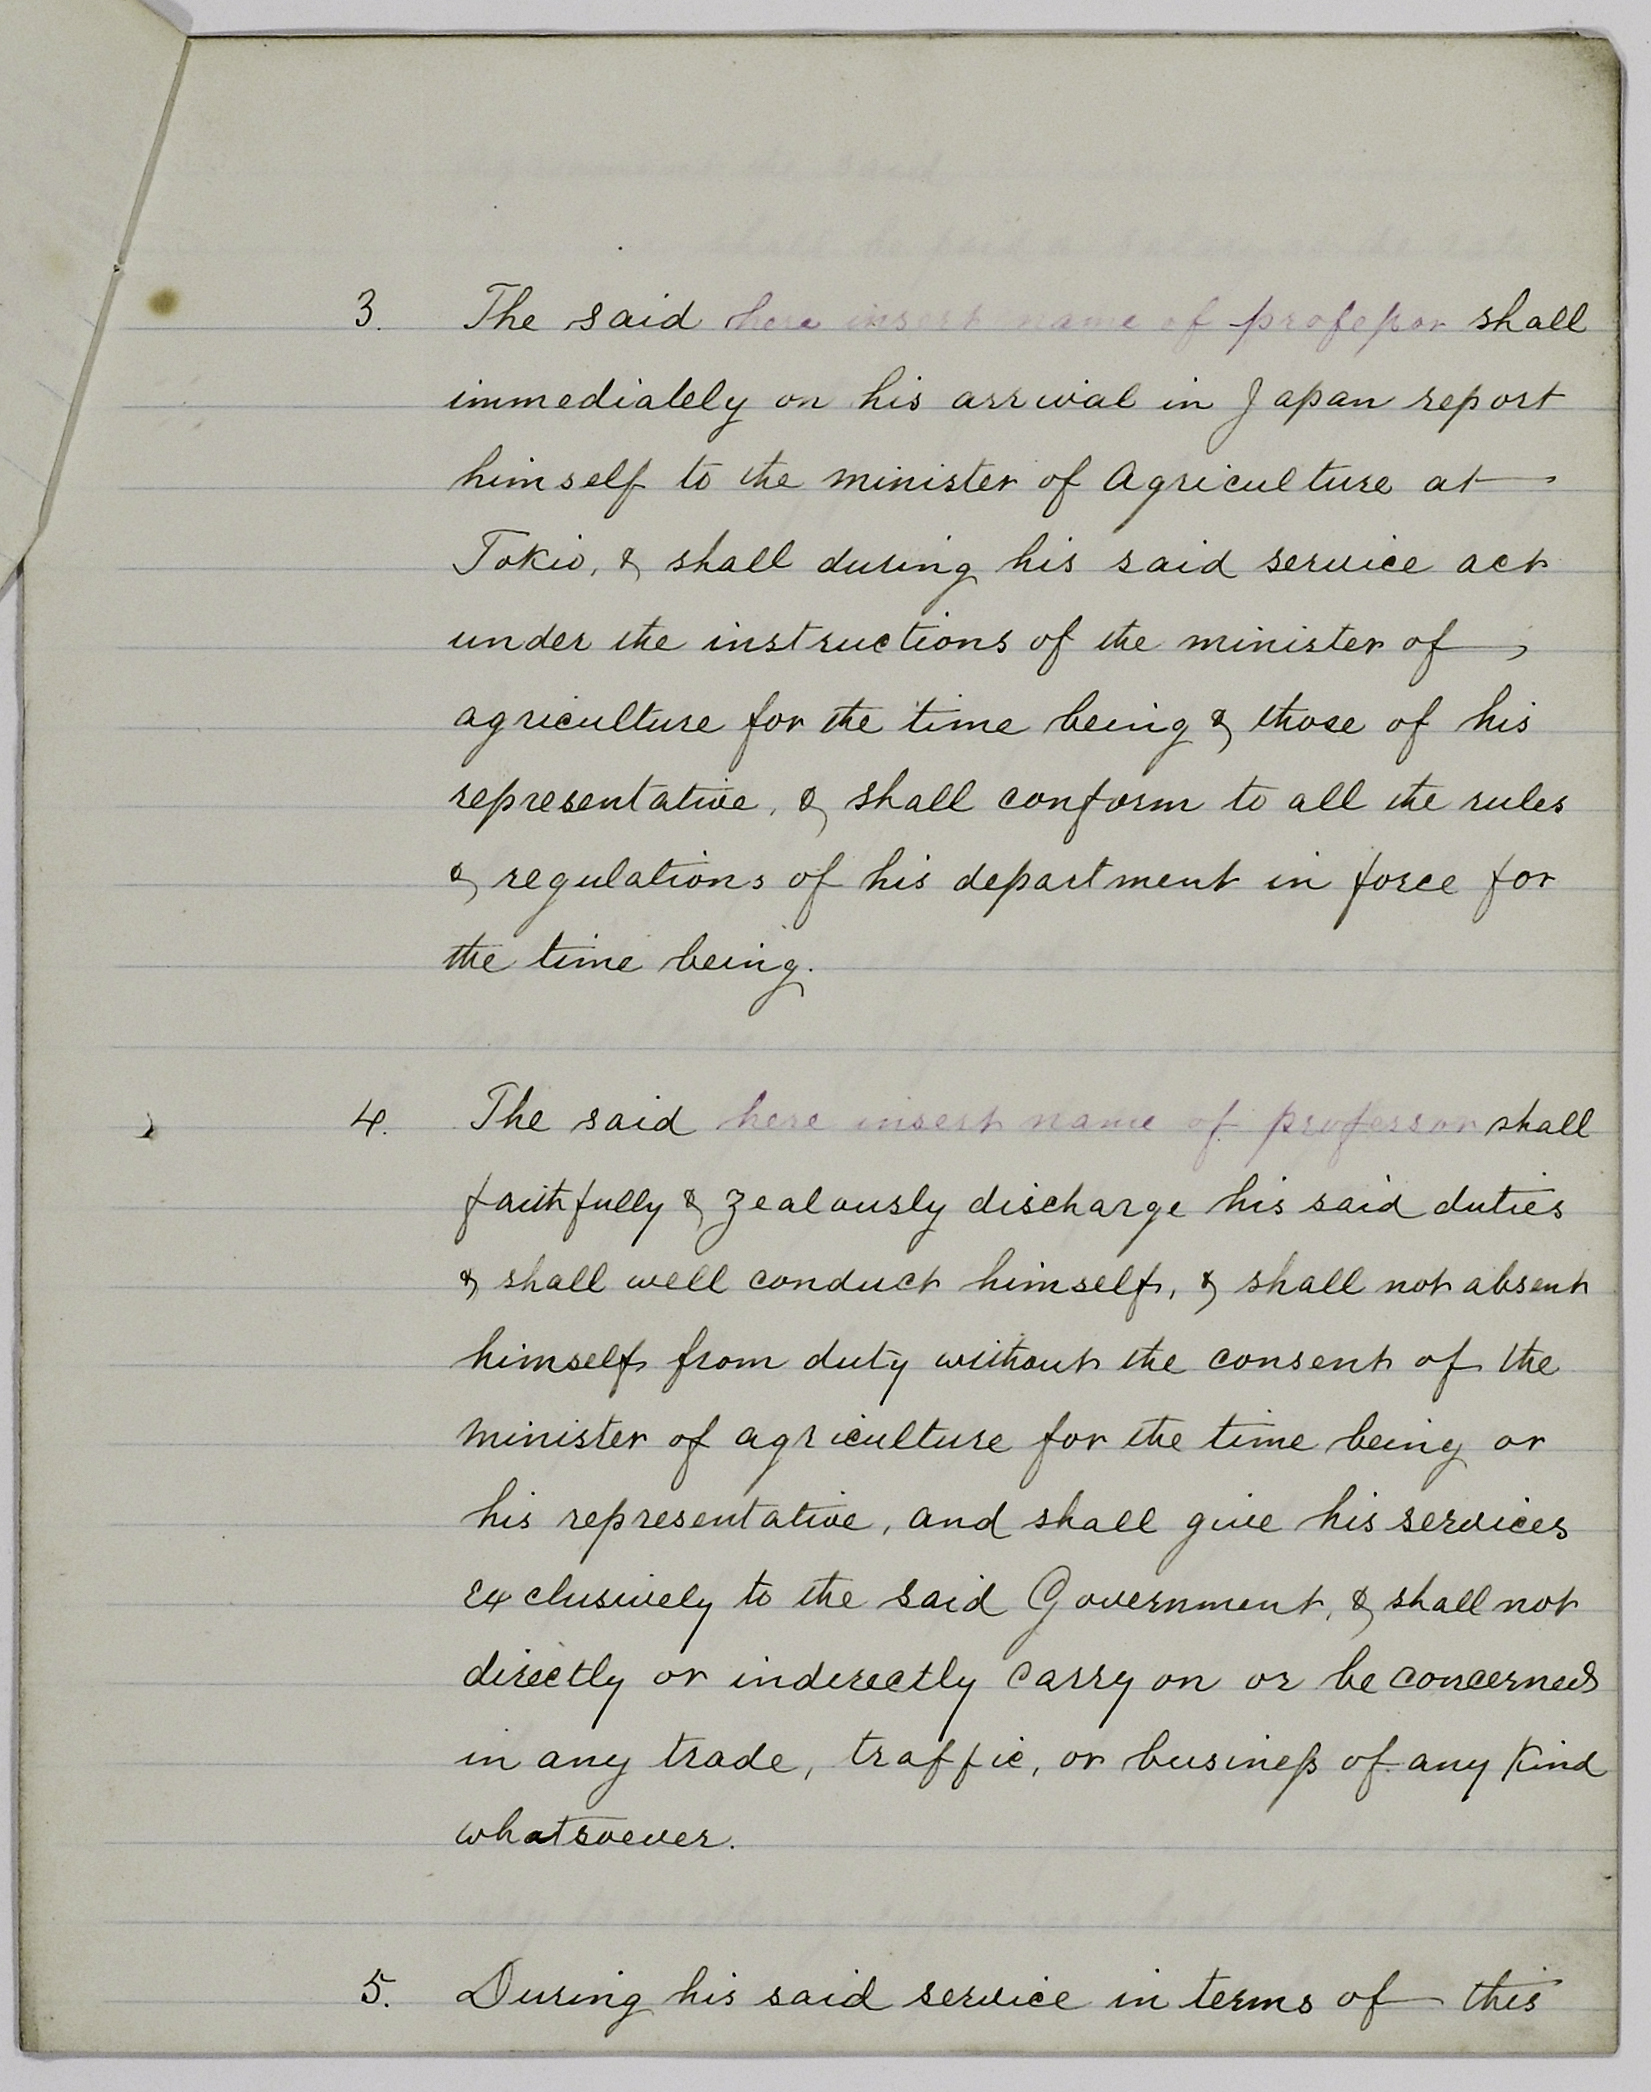 3. The said here insert name of professor shall
immediately on his arrival in Japan report
himself to the minister of Agriculture at
Tokio, & shall during his said service act
under the instructions of the minister of
agriculture for the time being & those of his
representative, & shall conform to all the rules
& regulations of his department in force for
the time being.
4. The said here insert name of professor shall
faithfully & zealously discharge his said duties
& shall well conduct himself, & shall not absent
himself from duty without the consent of the
minister of agriculture for the time being or
his representative, and shall give his services
exclusively to the said Government, & shall not
directly or inderectly carry on or be concerned
in any trade, traffic, or business of any kind
whatsoever.
5. During his said service in terms of this